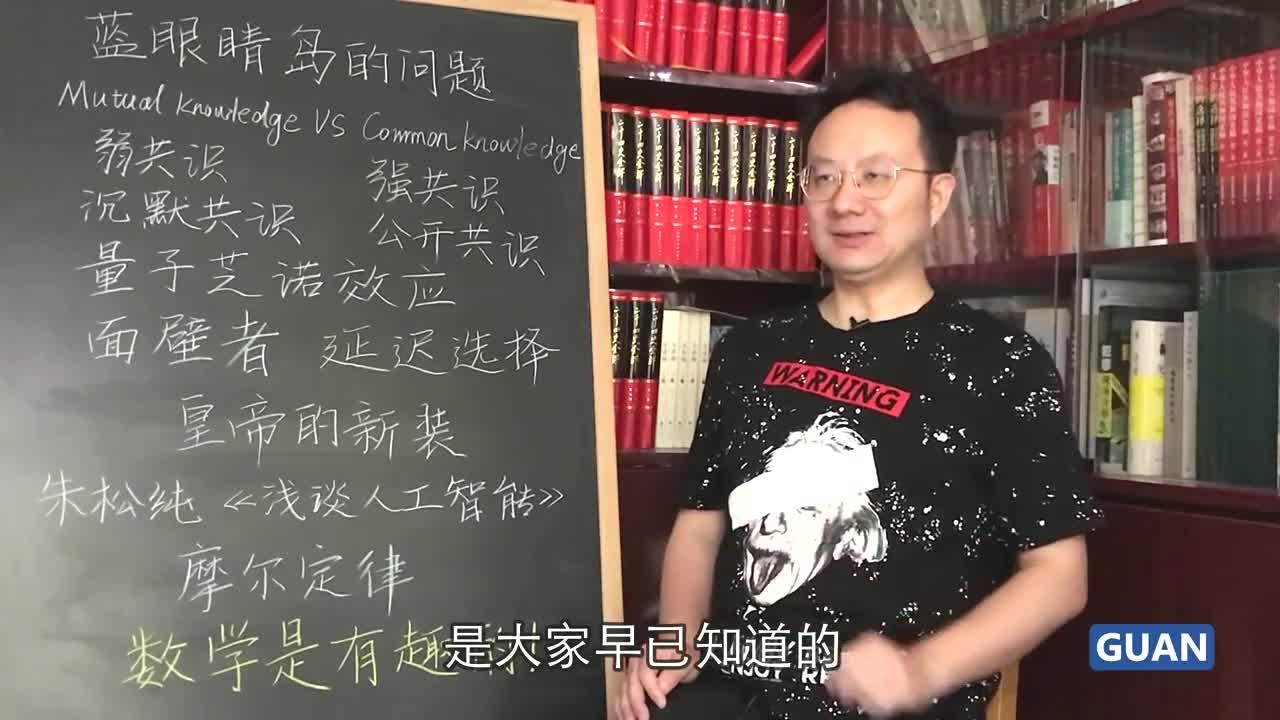 蓝眼睛岛的问题
Mutual knowledge VS Common knowledge
弱共识 强共识
沉默共识 公开共识
量子芝诺效应
面壁者 延迟选择
皇帝的新装
朱松纯《浅谈人工智能》
摩尔定律
数学是有趣
二十四史全译
WARNING
是大家早已知道的
GUAN